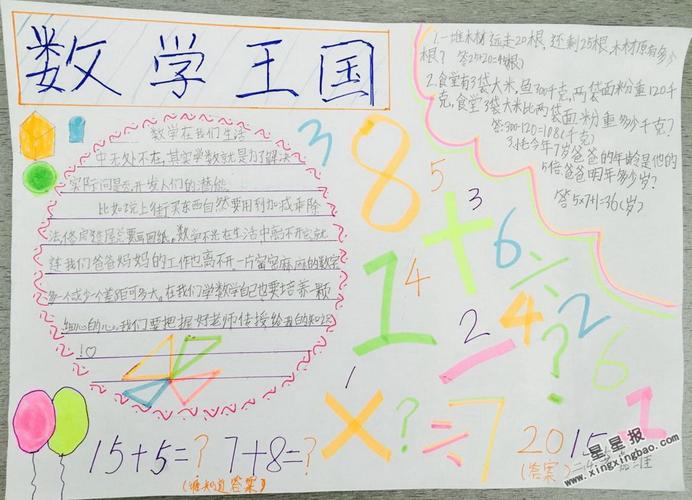 数学王国
1.一堆木材运走20根,还剩25根,木材原有多少
根? 答20+25=45(根)
2.食堂有3袋大米,重300千克,两袋面粉重120千
克,食堂3袋大米比两袋面粉重多少千克?
答:300-120=108(千克)
今年7岁爸爸的年龄是他的
5倍,爸爸明年多少岁?
答5×7+1=36(岁)
数学在我们生活
中无处不在,其实学数就是为了解决
实际问题,开发人们的潜能
比如说上街买东西自然要用到加减乘除
法,修房建屋总要画图纸。数学不光在生活中离不开它,就
连我们爸爸妈妈的工作也离不开。一片密密麻麻的数字
每一个或少一个差距可多大。在我们学数学自己也要培养一颗
细心的心。我们要把握好老师传授给我的知识
!
3
8
5
3
+
6
÷
1
4
2
4
2
-
?
6
1
×
?
÷
7
-1
15+5=? 7+8=?
(谁知道答案)
2015
(答案)
星星报
www.xingxingbao.com